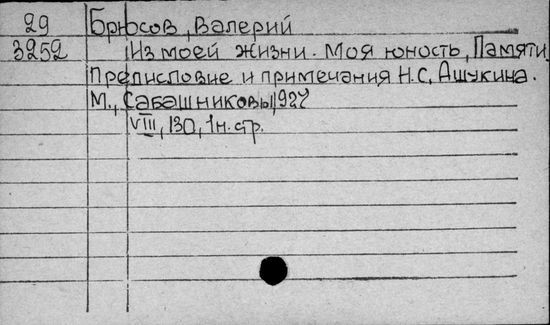 29 Брюсов, Валерий
3252 Из моей жизни. Моя юность, Памяти.
Предисловие и примечания Н.С. Ашукина.
М., Сабашниковы, 1927
VIII, 130, 1н. стр.